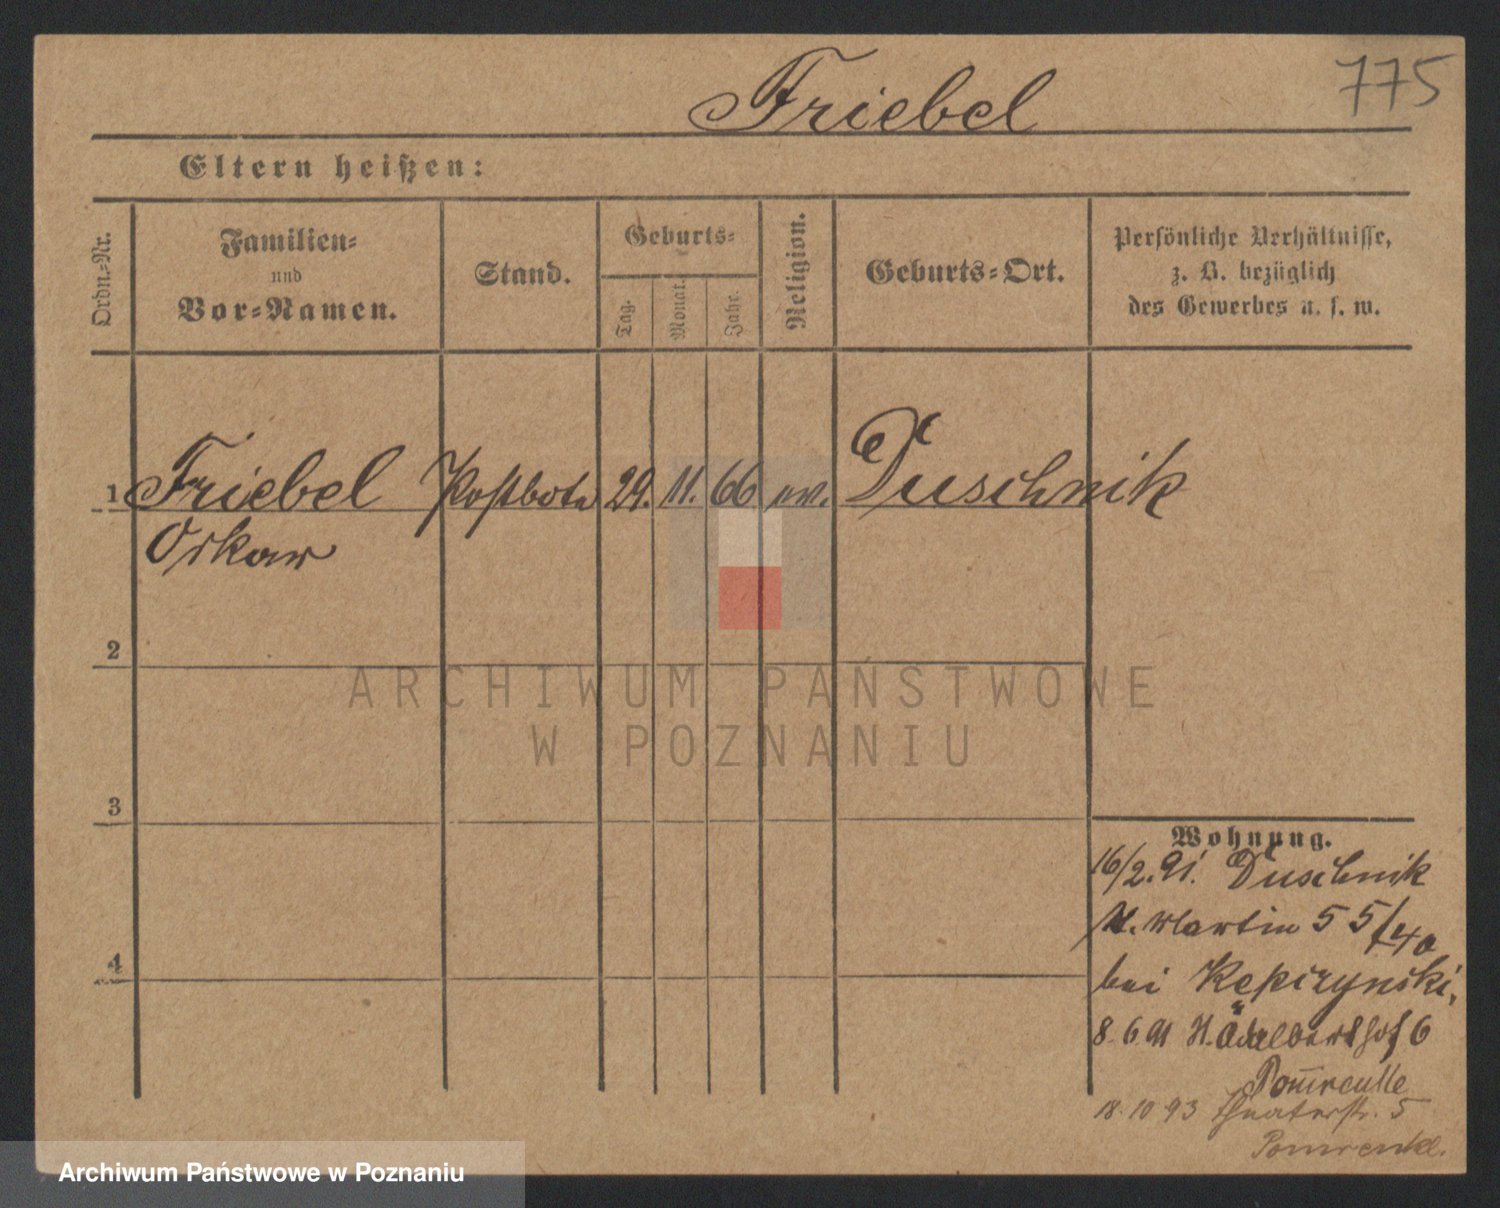 Friebel
775
Eltern heißen:
Ordn.=Nr.
Familien=
und
Vor=Namen.
Stand.
Geburts=
Tag.
Monat.
Jahr.
Religion.
Geburts=Ort.
Persönliche Verhältnisse,
z. B. bezüglich
des Gewerbes u. s. w.
1 Friebel Postbote 29. 11. 66 ev. Duschnik
Oskar
2
3
4
Wohnung.
16/2. 91. Duschnik
St. Martin 55/40
bei Kepczynski,
8. 6. 91 St. Adalbert Hof 6
18. 10 93 Theaterstr. 5
ARCHIWUM PAŃSTWOWE
W POZNANIU
Archiwum Państwowe w Poznaniu